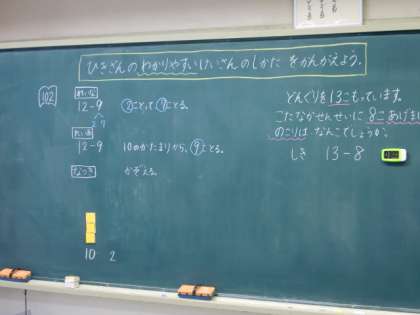 ひきざんのわかりやすいけいさんのしかたをかんがえよう。
102
12-9 ②ことって⑦ことる。
2 7
12-9 10のかたまりから、⑨ことる。
なつき かぞえる。
10 2
どんぐりを13こもっています。
こたながせんせいに8こあげまし
のこりは、なんこでしょうか。
しき 13-8